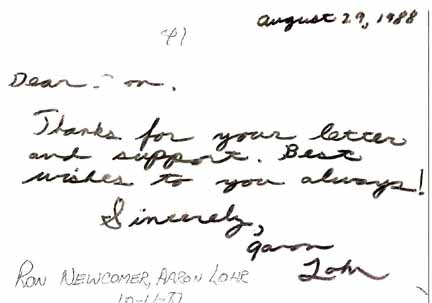 august 29, 1988
41
Dear
Thanks for your letter
and support. Best
wishes to you always!
Sincerely,
aaron
Lohr
RON NEWCOMER, AARON LOHR